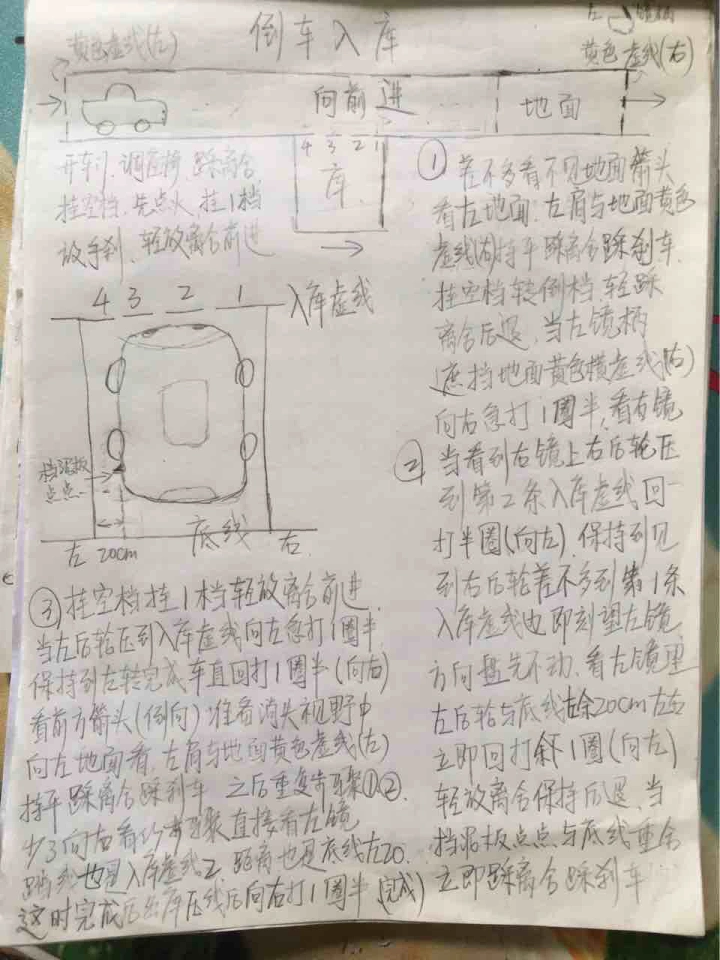 倒车入库
黄色虚线(左)
黄色虚线(右)
向前进
地面
4 3 2 1
库
开车门,调座椅,踩离合
挂空档,先点火,挂1档
放手刹,轻放离合前进
① 差不多看不见地面箭头
看左地面:左肩与地面黄色
虚线(右)持平踩离合踩刹车.
挂空档转倒档,轻踩
离合后退,当左镜柄
遮挡地面黄色横虚线(右)
向右急打1圈半,看右镜
4 3 2 1 入库虚线
挡泥板
点点
底线
左 20cm 右
② 当看到右镜上右后轮压
到第2条入库虚线回
打半圈(向左).保持到见
到右后轮差不多到第1条
入库虚线也即刻望左镜
方向盘先不动.看左镜里
左后轮与底线左余20cm左右
立即回打余下1圈(向左)
轻放离合保持后退,当
挡泥板点点与底线重合
立即踩离合踩刹车
③ 挂空档挂1档轻放离合前进.
当左后轮压到入库虚线向左急打1圈半
保持到左转完成车直回打1圈半(向右)
看前方箭头(倒向)准备消失视野中
向左地面看.左肩与地面黄色虚线(左)
持平踩离合踩刹车 之后重复步骤①②.
少了向右看 步骤直接看左镜
也是入库虚线2.距离也是底线左20.
这时完成后出库压线后向右打1圈半(完成)